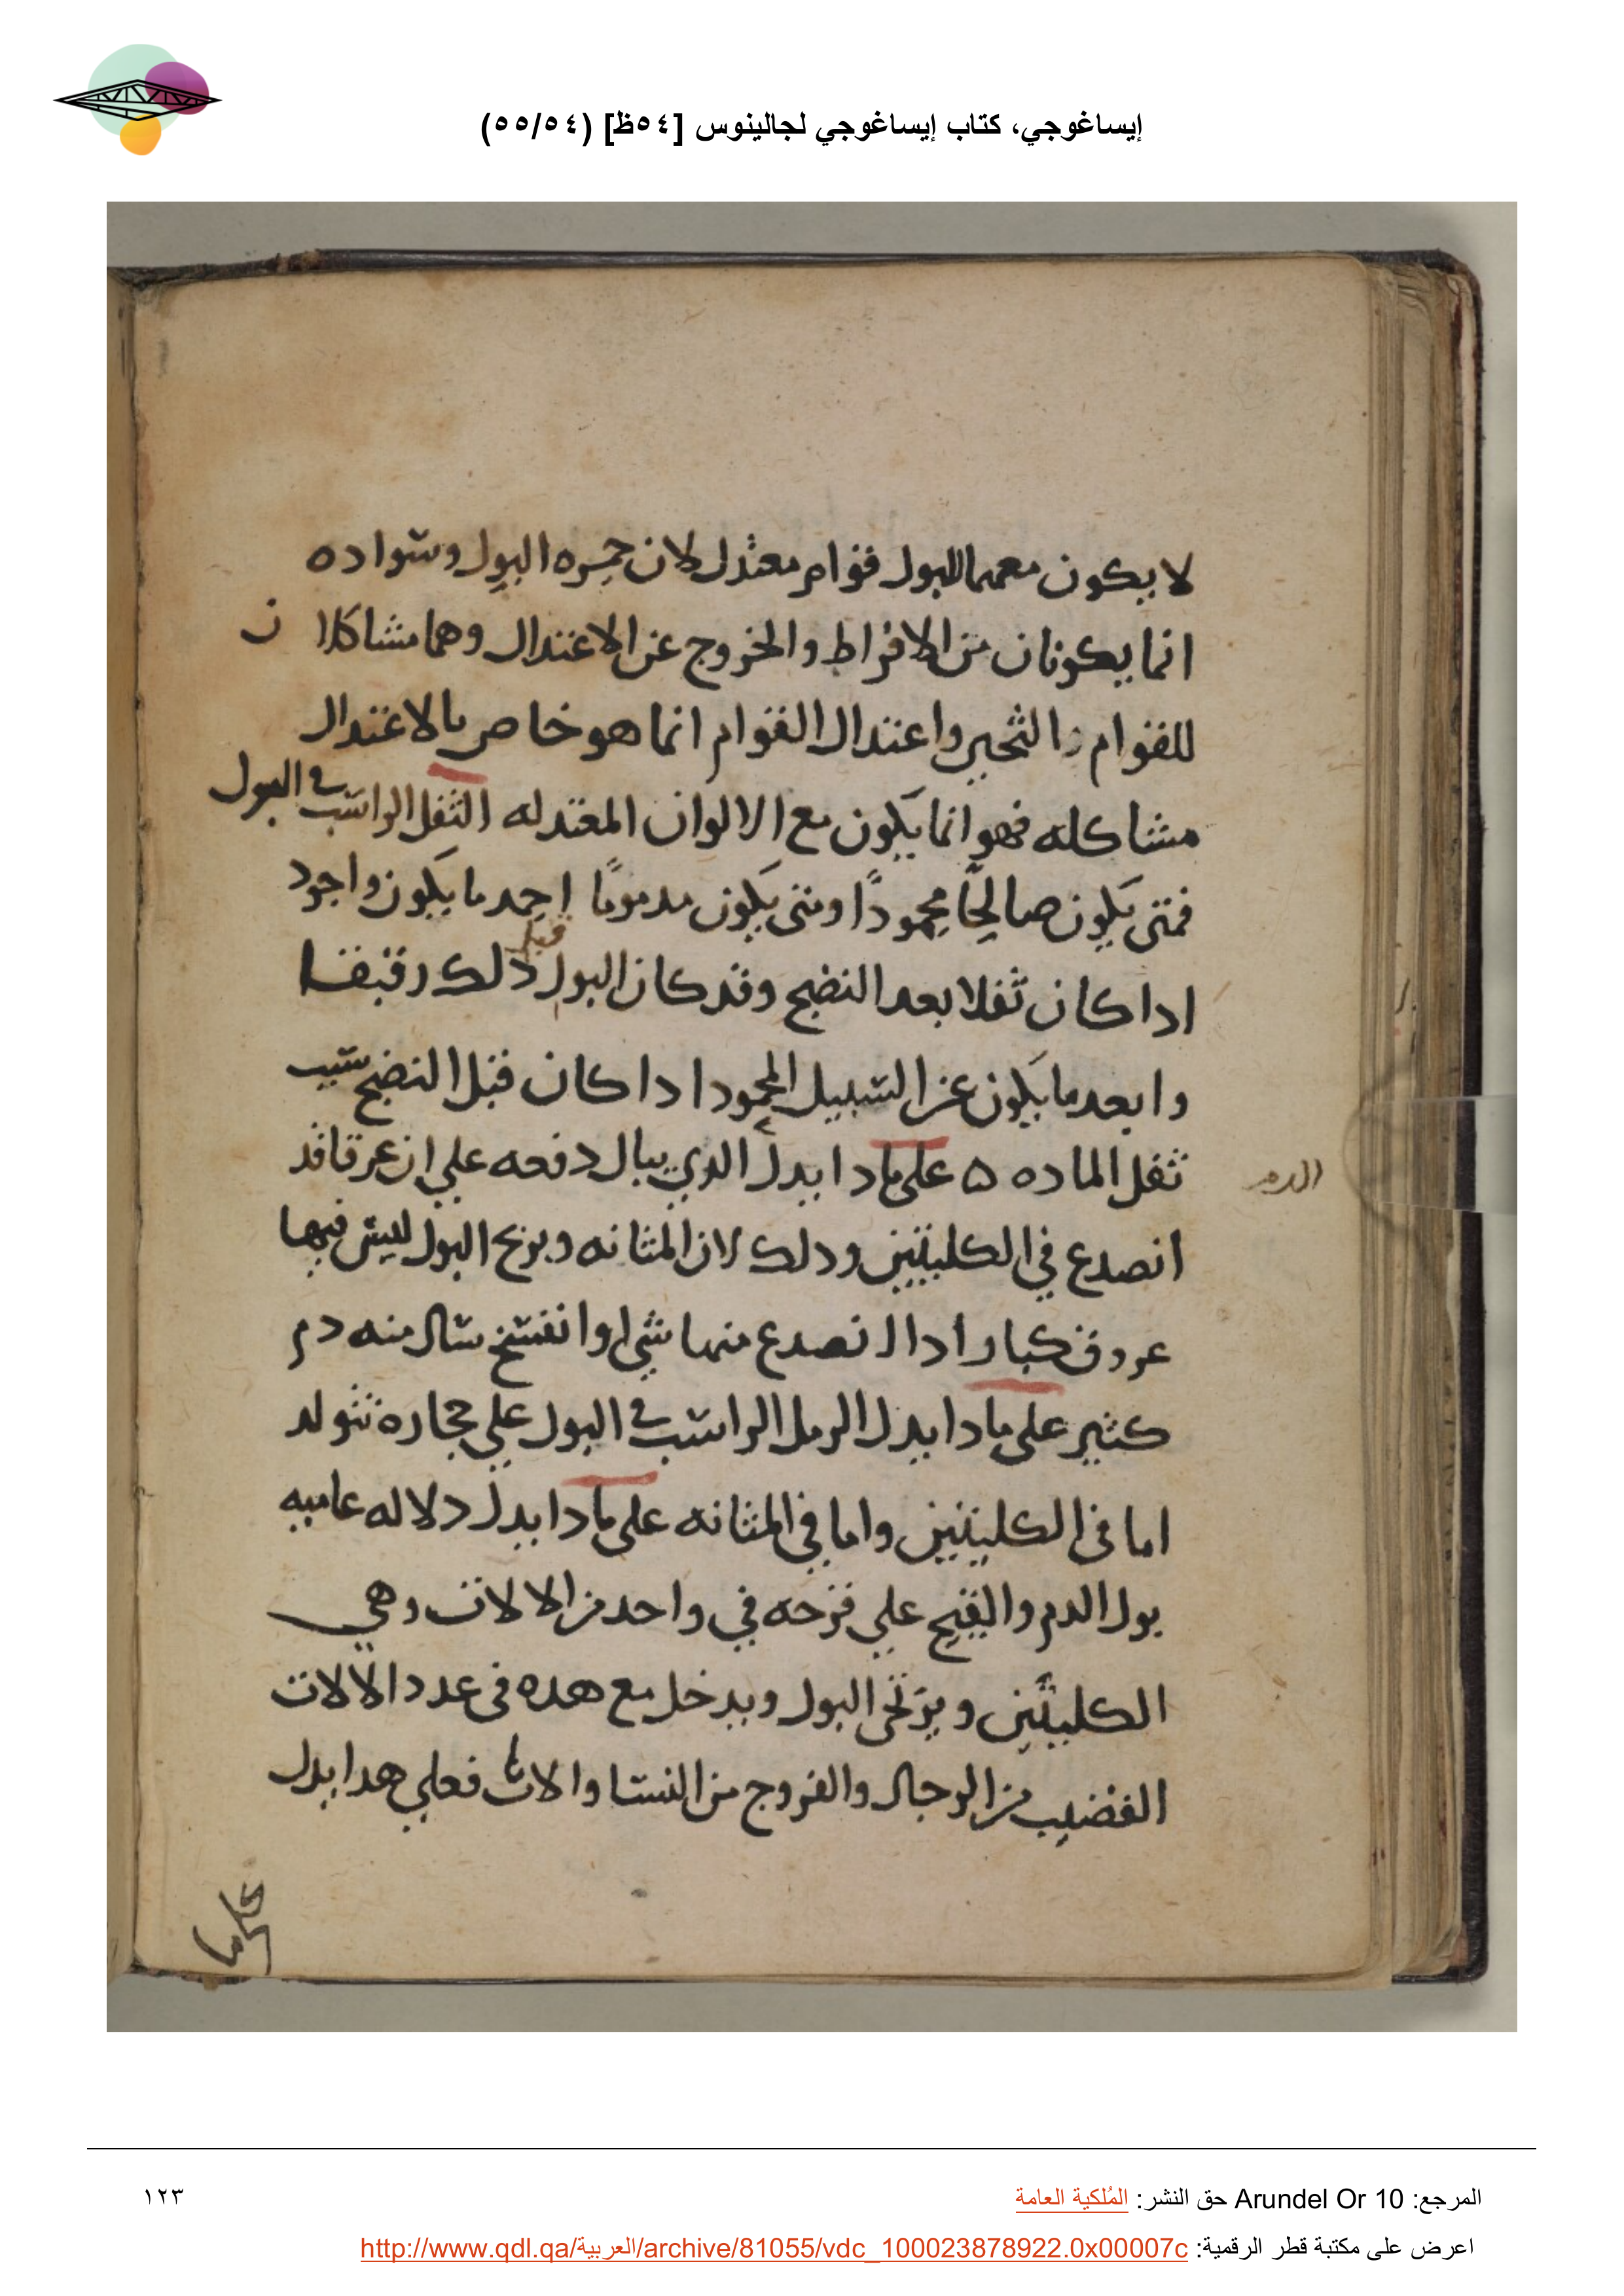 إيساغوجي، كتاب إيساغوجي لجالينوس [٥٤ظ] (٥٥/٥٤)
لا يكون معهما للبول قوام معتدل لان حمره البول وسواده
انما يكونان من الافراط والخروج عن الاعتدال وهما مشاكلا ن
للقوام والثخين واعتدال القوام انما هو خاص بالاعتدال
مشاكله فهو انما يكون مع الالوان المعتدله الثفل الراسب في البول
فمتى يكون صالحًا محمودًا ومتى يكون مدمومًا احمد ما يكون واجود
ادا كان ثفلا بعد النضج وقد كان البول قبل دلك رقيقا
وابعد ما يكون عن السبيل المحمود ادا كان قبل النضج سبب
ثفل الماده ه على مادا يدل الدي يبال دفعه علي ان عرقا قد
الدم
انصدع في الكليتين ودلك لان المثانه وبرنج البول ليس فيها
عروق كبار ادا انصدع منها شي او انفتح سال منه دم
كثير على مادا يدل الرمل الراسب في البول علي حجاره تتولد
اما في الكليتين واما في المثانه على مادا يدل دلاله عاميه
بول الدم والقيح علي قرحه في واحد من الالات وهي
الكليتين وبرنخي البول ويدخل مع هده في عدد الالات
القضيب من الرجال والفروج من النسا والاناث فعلي هدا يدل
علي ما
المرجع: Arundel Or 10 حق النشر: المُلكية العامة
١٢٣
اعرض على مكتبة قطر الرقمية: http://www.qdl.qa/العربية/archive/81055/vdc_100023878922.0x00007c